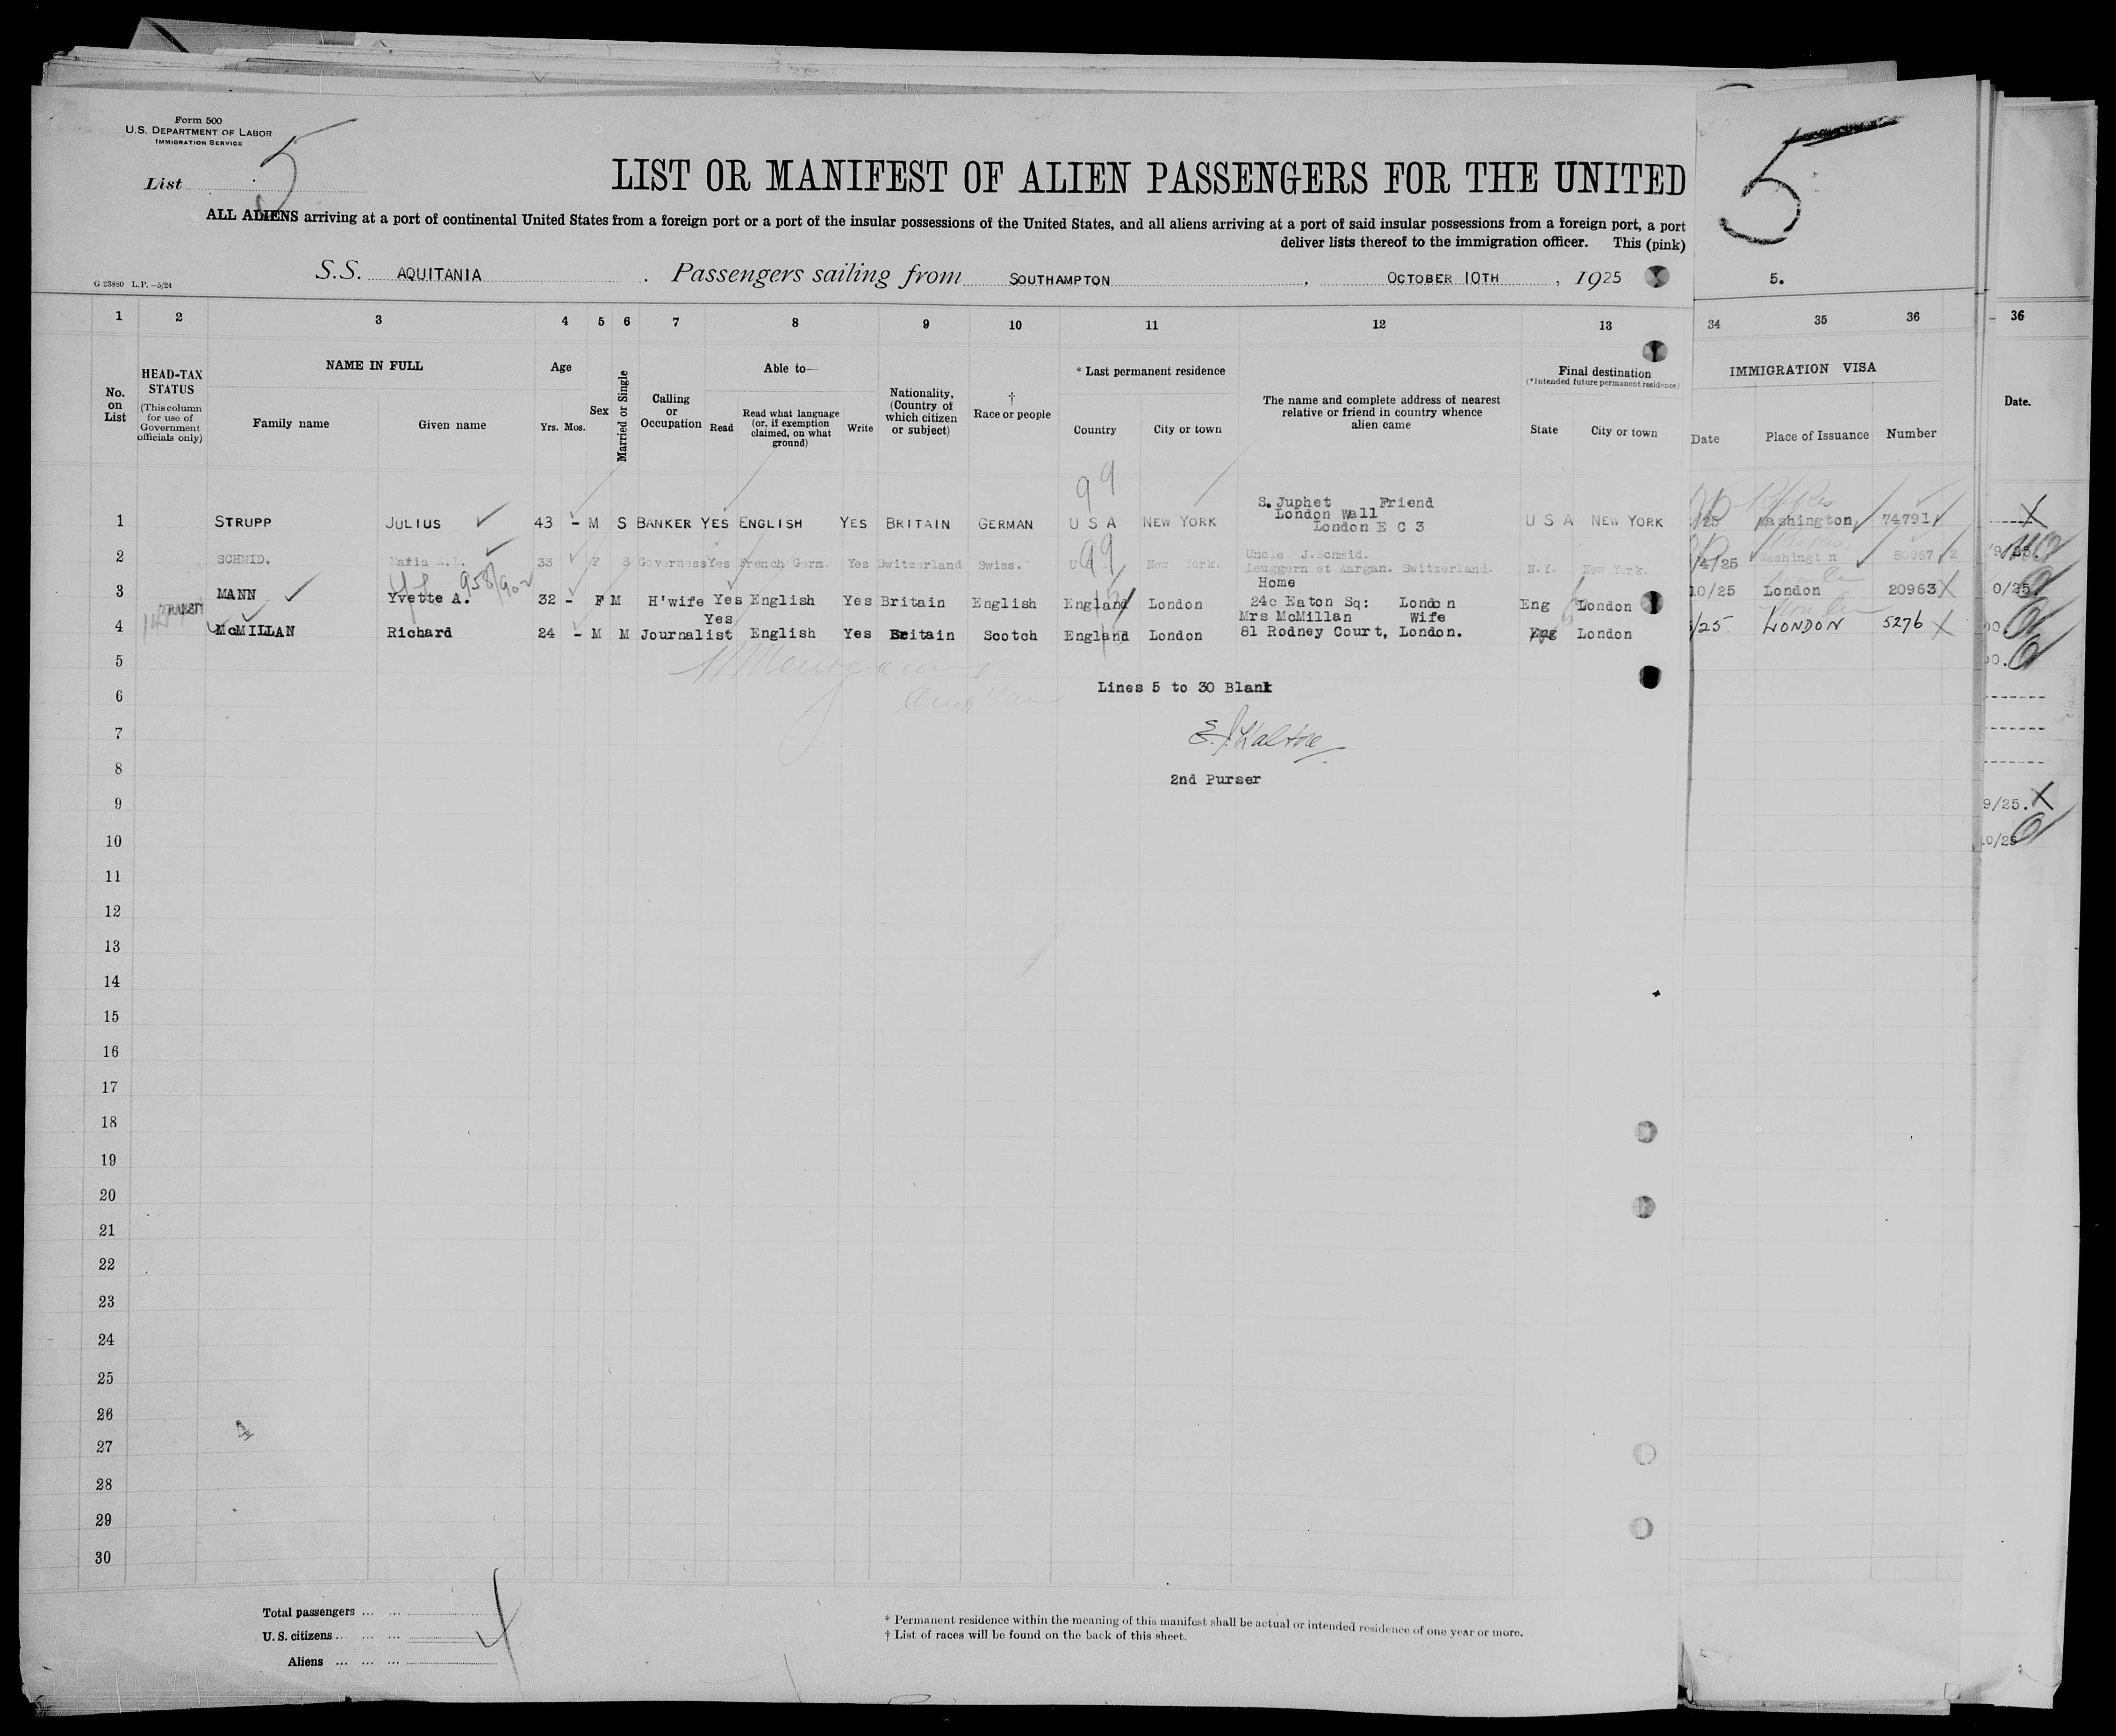 Form 500
U.S. DEPARTMENT OF LABOR
IMMIGRATION SERVICE
List 5
5
LIST OR MANIFEST OF ALIEN PASSENGERS FOR THE UNITED
ALL ALIENS arriving at a port of continental United States from a foreign port or a port of the insular possessions of the United States, and all aliens arriving at a port of said insular possessions from a foreign port, a port
deliver lists thereof to the immigration officer. This (pink)
S.S. AQUITANIA . Passengers sailing from SOUTHAMPTON , OCTOBER 10TH , 1925
5.
G 23880 L.P.—5/24
1 2 3 4 5 6 7 8 9 10 11 12 13 34 35 36 36
No. on List
HEAD-TAX STATUS
(This column for use of Government officials only)
NAME IN FULL
Family name Given name
Age
Yrs. Mos.
Sex
Married or Single
Calling or Occupation
Able to—
Read
Read what language (or, if exemption claimed, on what ground)
Write
Nationality, (Country of which citizen or subject)
† Race or people
* Last permanent residence
Country City or town
The name and complete address of nearest relative or friend in country whence alien came
Final destination
(*Intended future permanent residence)
State City or town
IMMIGRATION VISA
Date Place of Issuance Number
Date.
99
S. Juphet Friend
London Wall
London E C 3
1 STRUPP JULIUS 43 - M S BANKER YES ENGLISH YES BRITAIN GERMAN U S A NEW YORK U S A NEW YORK /25 Washington 74791
99
Uncle. J. Schmid.
Leuggern et Aargan. Switzerland.
2 SCHMID. Maria A.L. 33 F S Governess Yes French Germ. Yes Switzerland Swiss. New York. N.Y. New York. /4/25 Washington 2
958/902
Home
24c Eaton Sq: London
3 MANN Yvette A. 32 - F M H'wife Yes English Yes Britain English England London Eng London 10/25 London 20963 0/25
TRANSIT
Mrs McMillan Wife
81 Rodney Court, London.
4 McMILLAN Richard 24 - M M Journalist Yes English Yes Britain Scotch England London Eng London /25. LONDON 5276
5
6
Lines 5 to 30 Blank
7
8
2nd Purser
9
9/25.
10
0/25
11
12
13
14
15
16
17
18
19
20
21
22
23
24
25
26
27
28
29
30
4
Total passengers ... ...
U.S. citizens ... ... ...
Aliens ... ... ...
* Permanent residence within the meaning of this manifest shall be actual or intended residence of one year or more.
† List of races will be found on the back of this sheet.